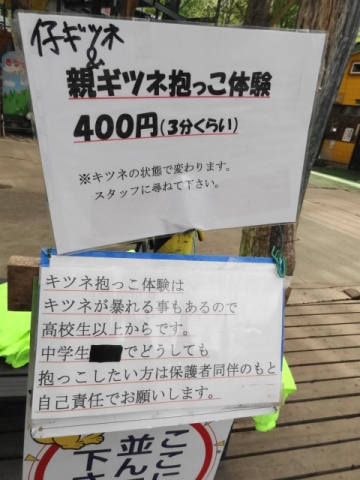 仔ギツネ
親ギツネ抱っこ体験
400円(3分くらい)
※キツネの状態で変わります。
スタッフに尋ねて下さい。
キツネ抱っこ体験は
キツネが暴れる事もあるので
高校生以上からです。
中学生　　でどうしても
抱っこしたい方は保護者同伴のもと
自己責任でお願いします。
ここに
並んで
下さ